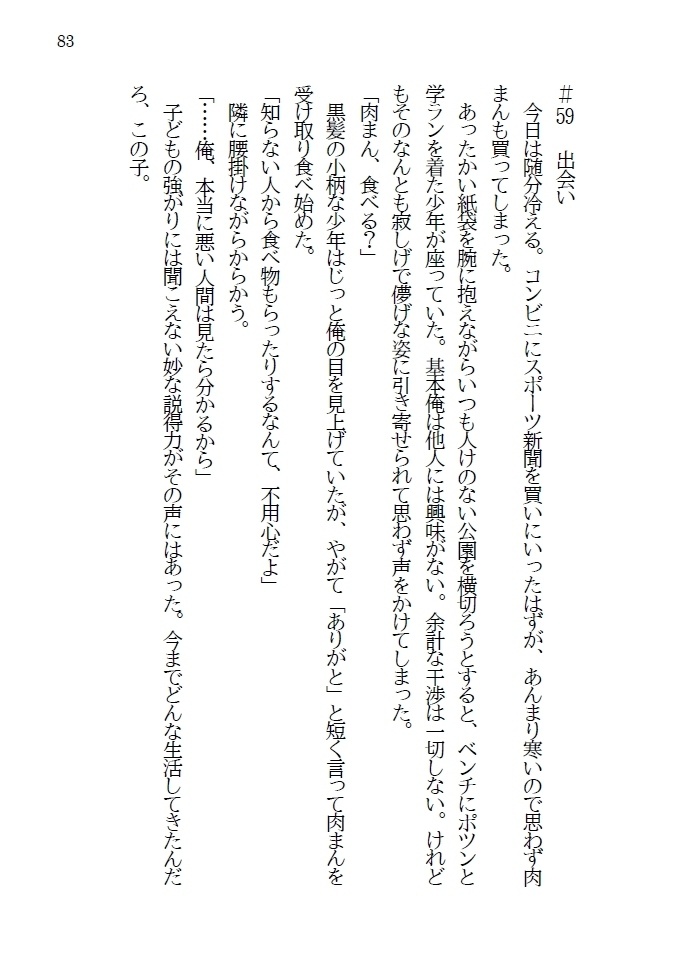 83
＃59　出会い
　今日は随分冷える。コンビニにスポーツ新聞を買いにいったはずが、あんまり寒いので思わず肉
まんも買ってしまった。
　あったかい紙袋を腕に抱えながらいつも人けのない公園を横切ろうとすると、ベンチにポツンと
学ランを着た少年が座っていた。基本俺は他人には興味がない。余計な干渉は一切しない。けれど
もそのなんとも寂しげで儚げな姿に引き寄せられて思わず声をかけてしまった。
「肉まん、食べる？」
　黒髪の小柄な少年はじっと俺の目を見上げていたが、やがて「ありがと」と短く言って肉まんを
受け取り食べ始めた。
「知らない人から食べ物もらったりするなんて、不用心だよ」
　隣に腰掛けながらからかう。
「……俺、本当に悪い人間は見たら分かるから」
　子どもの強がりには聞こえない妙な説得力がその声にはあった。今までどんな生活してきたんだ
ろ、この子。